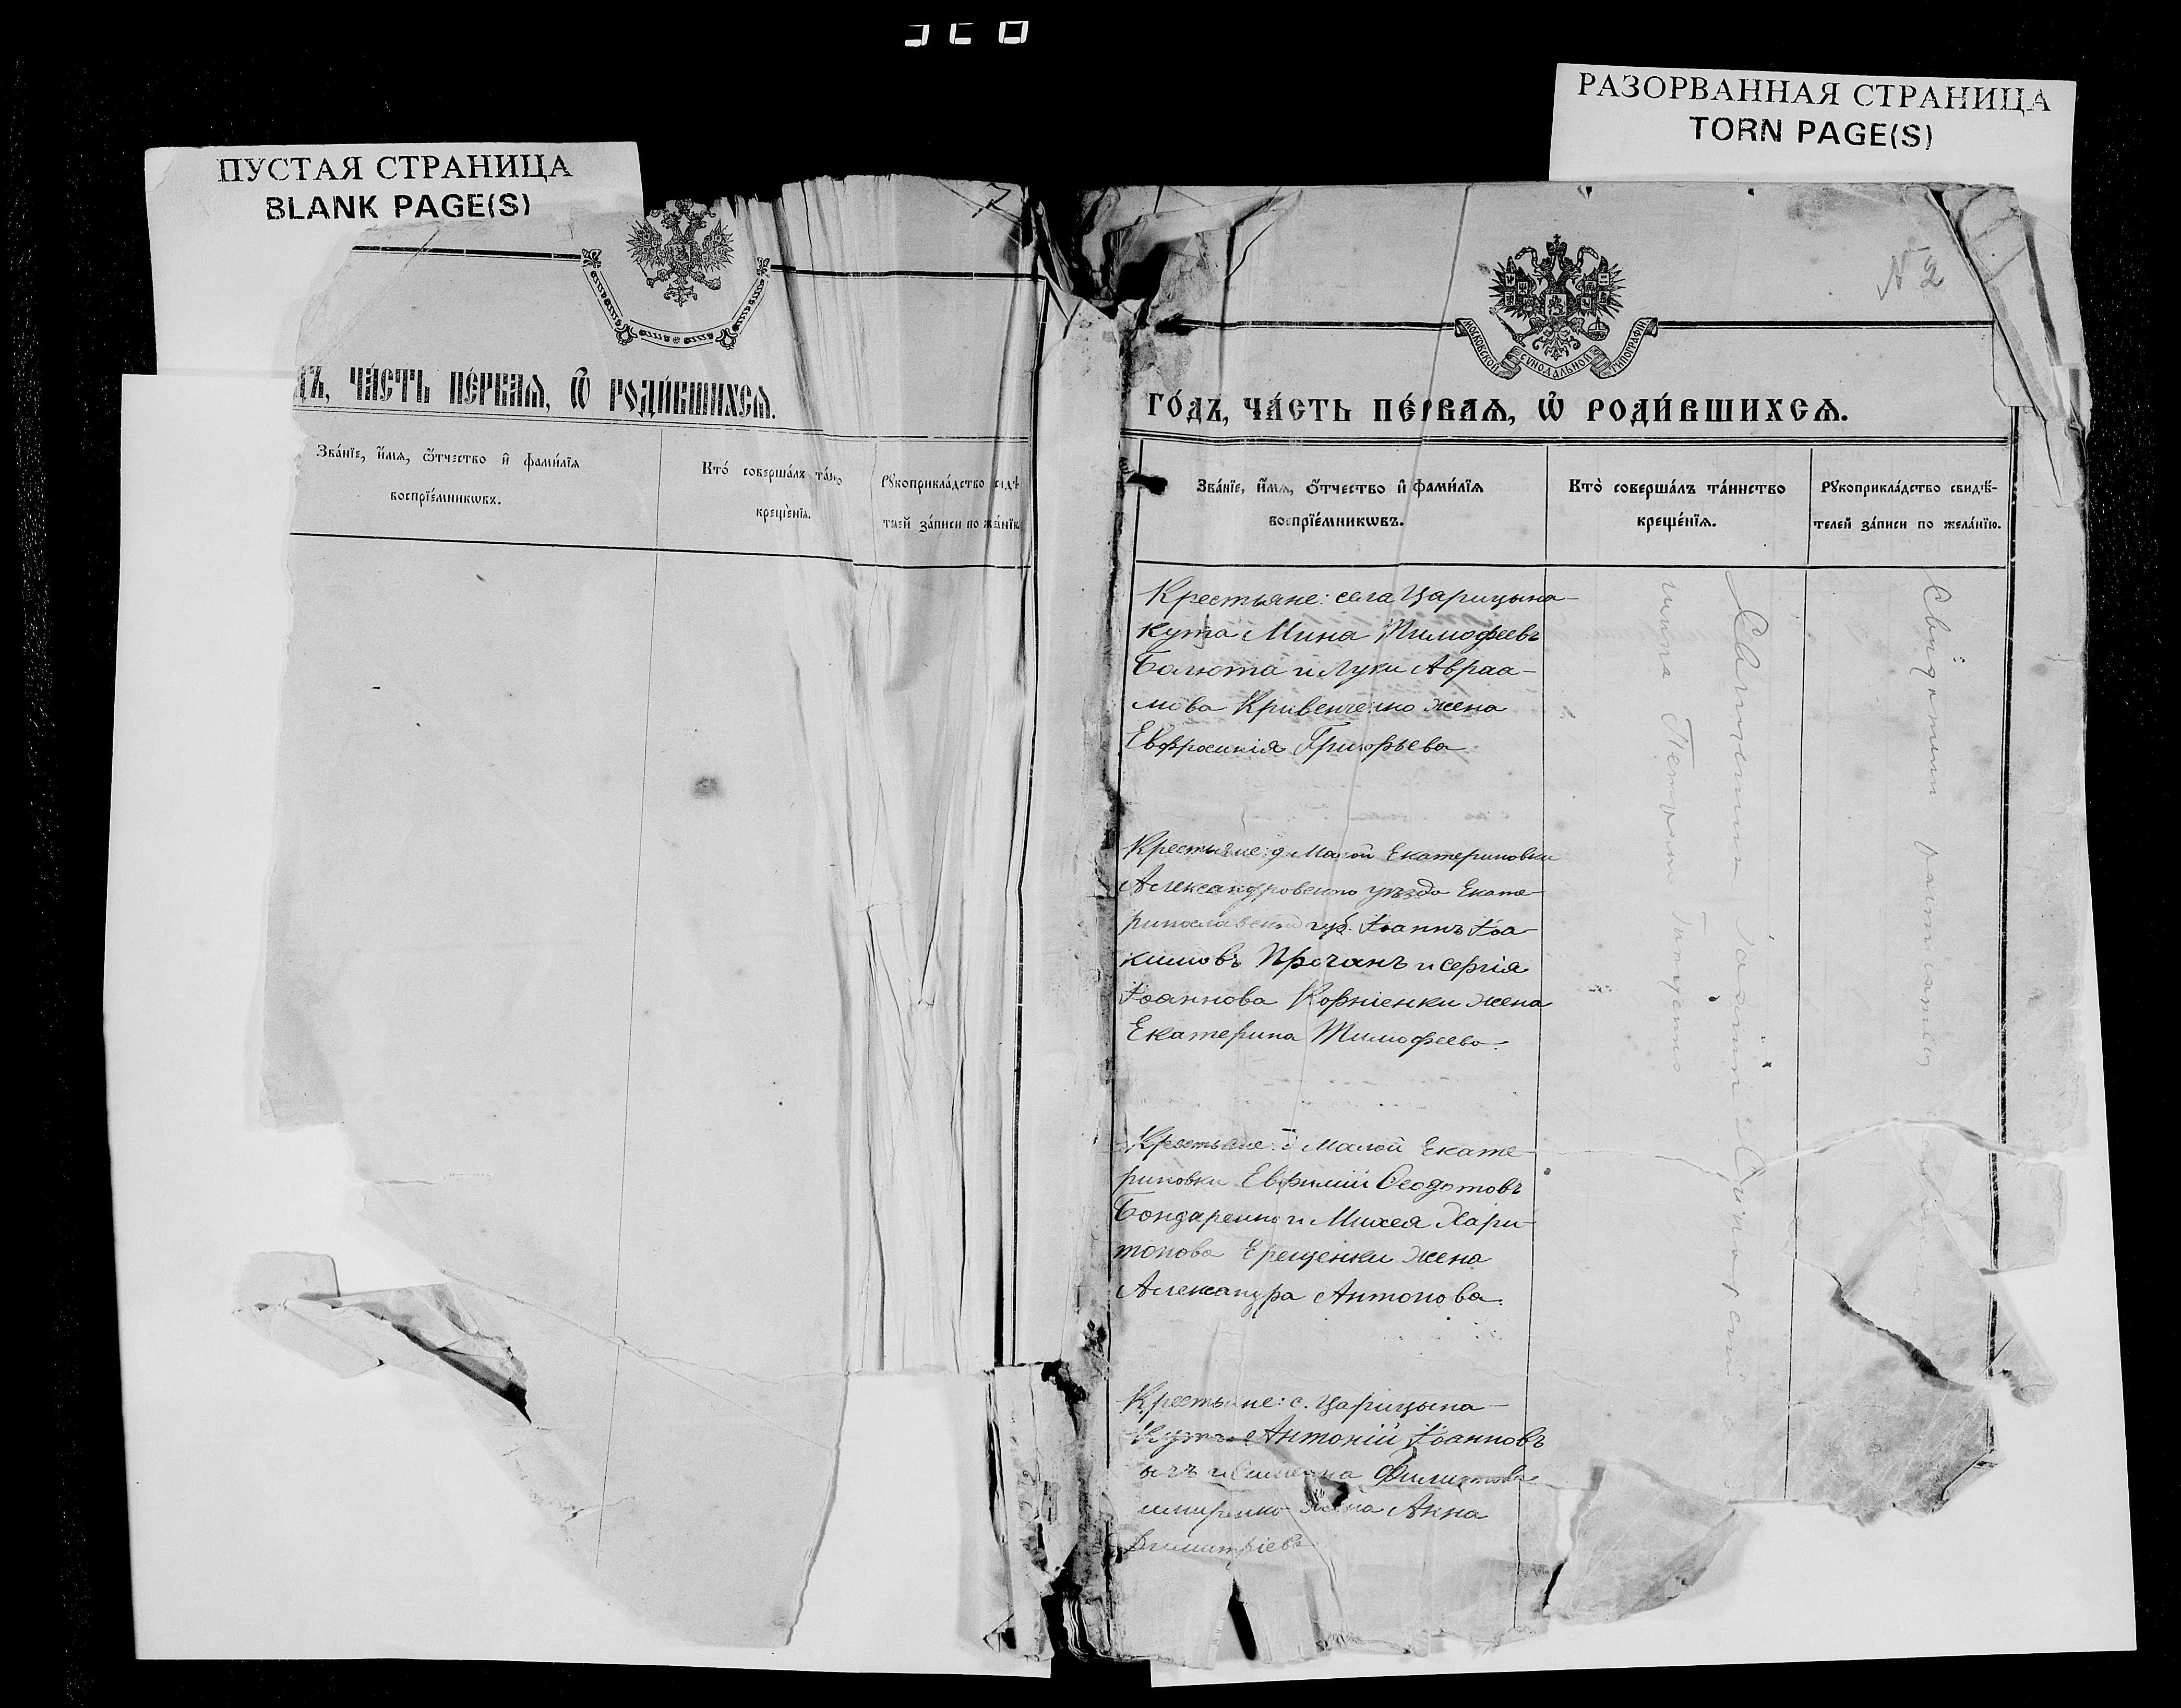 ПУСТАЯ СТРАНИЦА
BLANK PAGE(S)
РАЗОРВАННАЯ СТРАНИЦА
TORN PAGE(S)
ДЪ, ЧА́СТЬ ПЕ́РВАѦ, Ѿ РОДИ́ВШИХСѦ.
Зва́нїе, и҆́мѧ, ѻ҆́тчество и҆ фами́лїѧ
воспрїе́мникѡвъ.
Кто̀ соверша́лъ
креще́нїѧ.
Рꙋкоприкла́дство
за́писи по
№ 2
МОСКОВСКОЙ СѴНОДАЛЬНОЙ ТИПОГРАФІИ
ГО́ДЪ, ЧА́СТЬ ПЕ́РВАѦ, Ѿ РОДИ́ВШИХСѦ.
Зва́нїе, и҆́мѧ, ѻ҆́тчество и҆ фами́лїѧ
воспрїе́мникѡвъ.
Кто̀ соверша́лъ та́инство
креще́нїѧ.
Рꙋкоприкла́дство свидѣ́-
телей за́писи по жела́нїю.
Крестьяне: села Царицына-
кута Мина Тимофеевъ
Балюта и Луки Авраа-
мова Кривенченко жена
Евфросинія Григорьева.
Крестьяне: д. Малой Екатериновки
Александровскаго уѣзда Екате-
ринославской губ. Іоаннъ Іоа-
кимовъ Прочанъ и Сергія
Іоаннова Корніенки жена
Екатерина Тимофеева.
Крестьяне: Малой Екате-
риновки Евфимій Феодотовъ
Бондаренко и Михея Хари-
тонова Ерещенки жена
Александра Антонова.
Крестьяне: с. Царицына-
Кута Антоній Іоанновъ
и Филиппова
жена Анна
Димитріева
Священникъ